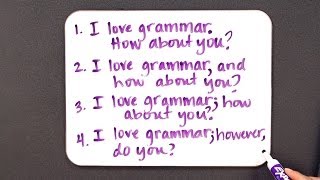 1. I love grammar.
How about you?
2. I love grammar, and
how about you?
3. I love grammar; how
about you?
4. I love grammar; however,
do you?